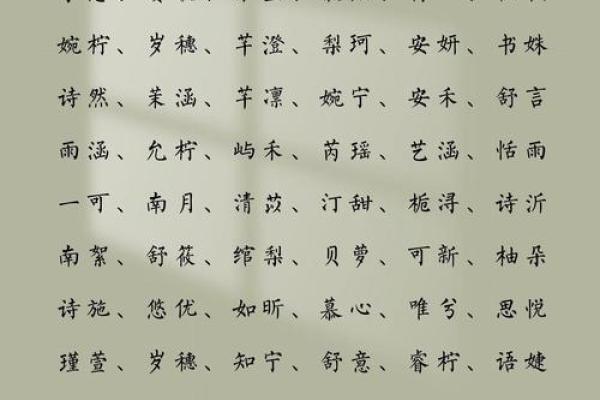 婉柠、岁穗、芊澄、梨珂、安妍、书姝
诗然、茉涵、芊凛、婉宁、安禾、舒言
雨涵、允柠、屿禾、芮瑶、艺涵、恬雨
一可、南月、清苡、汀甜、栀浔、诗沂
南絮、舒筱、绾梨、贝萝、可新、柚朵
诗施、悠优、如昕、慕心、唯兮、思悦
瑾萱、岁穗、知宁、舒意、睿柠、语婕